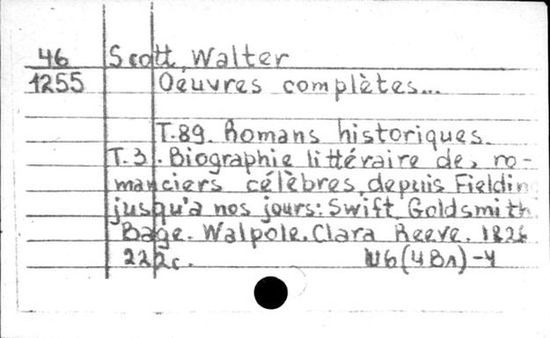 46 Scott, Walter
1255 Oeuvres complètes...
T.89. Romans historiques.
T.3. Biographie littéraire de, ro-
manciers célèbres, depuis Fieldin
jusqu'a nos jours: Swift, Goldsmith
Bage. Walpole. Clara Reeve. 1826
222c. И6(4Вл)-4